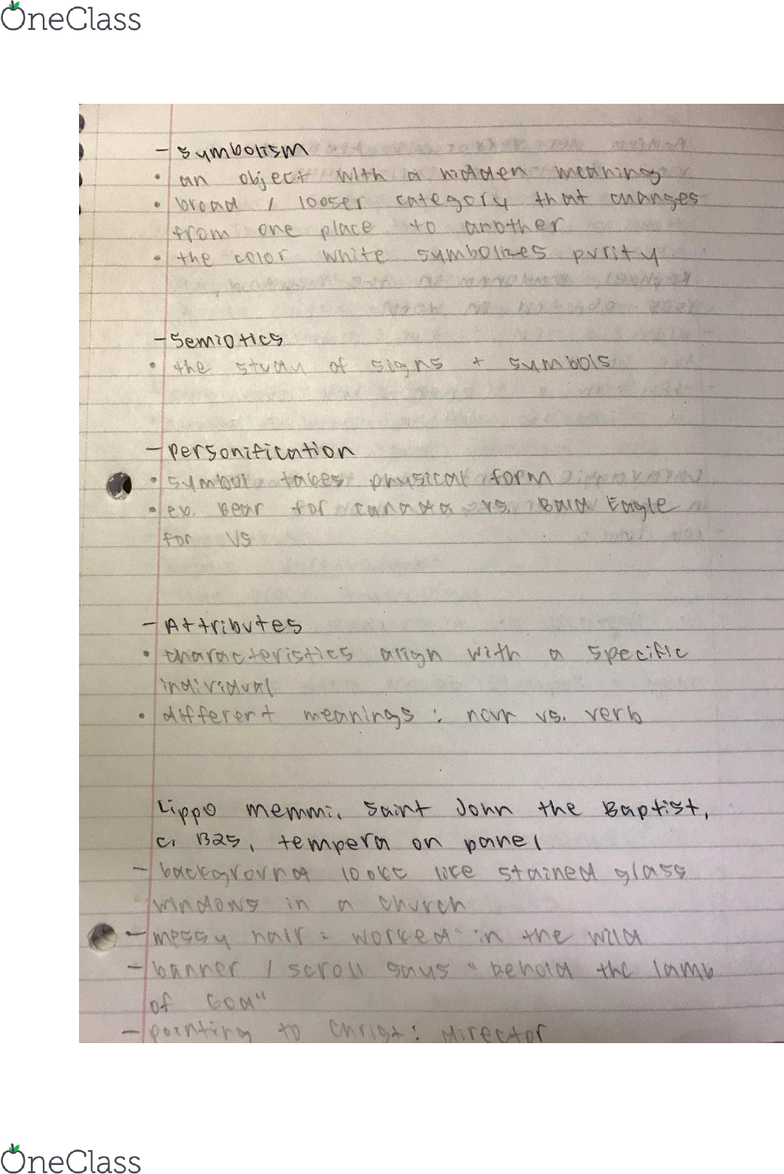 OneClass
- Symbolism
• an object with a hidden meaning
• broad / looser category that changes
from one place to another
• the color white symbolizes purity
- Semiotics
• the study of signs + symbols
- Personification
• symbol takes physical form
• ex. Bear for Canada vs. Bald Eagle
for US
- Attributes
• characteristics align with a specific
individual
• different meanings : noun vs. verb
Lippo memmi, Saint John the Baptist,
c. 1325, tempera on panel
- background looks like stained glass
windows in a church
- messy hair = worked in the wild
- banner / scroll says "behold the lamb
of God"
- pointing to Christ : director
OneClass